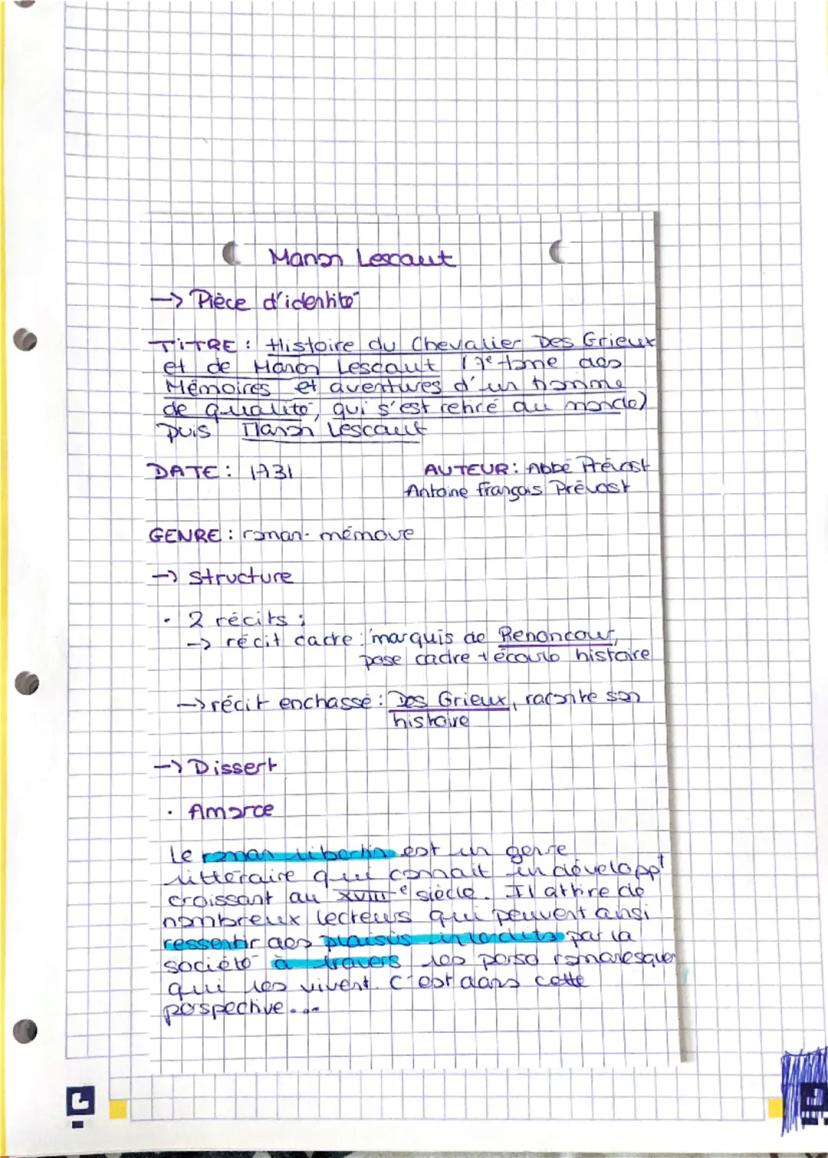 Manon Lescaut
→ Pièce d'identité
TITRE : Histoire du Chevalier Des Grieux
et de Manon Lescaut (7e tome des
Mémoires et aventures d'un homme
de qualité, qui s'est retiré du monde)
puis Manon Lescaut
DATE : 1731 AUTEUR : Abbé Prévost
Antoine françois Prévost
GENRE : roman-mémoire
→ Structure
• 2 récits :
→ récit cadre : marquis de Renoncour,
pose cadre + écoute histoire
→ récit enchassé : Des Grieux, raconte son
histoire
→ Dissert
• Amorce
Le roman libertin est un genre
littéraire qui connait un développt
croissant au XVIIIe siècle. Il attire de
nombreux lecteurs qui peuvent ainsi
ressentir des plaisirs interdits par la
société à travers les perso romanesques
qui les vivent. C'est dans cette
perspective...